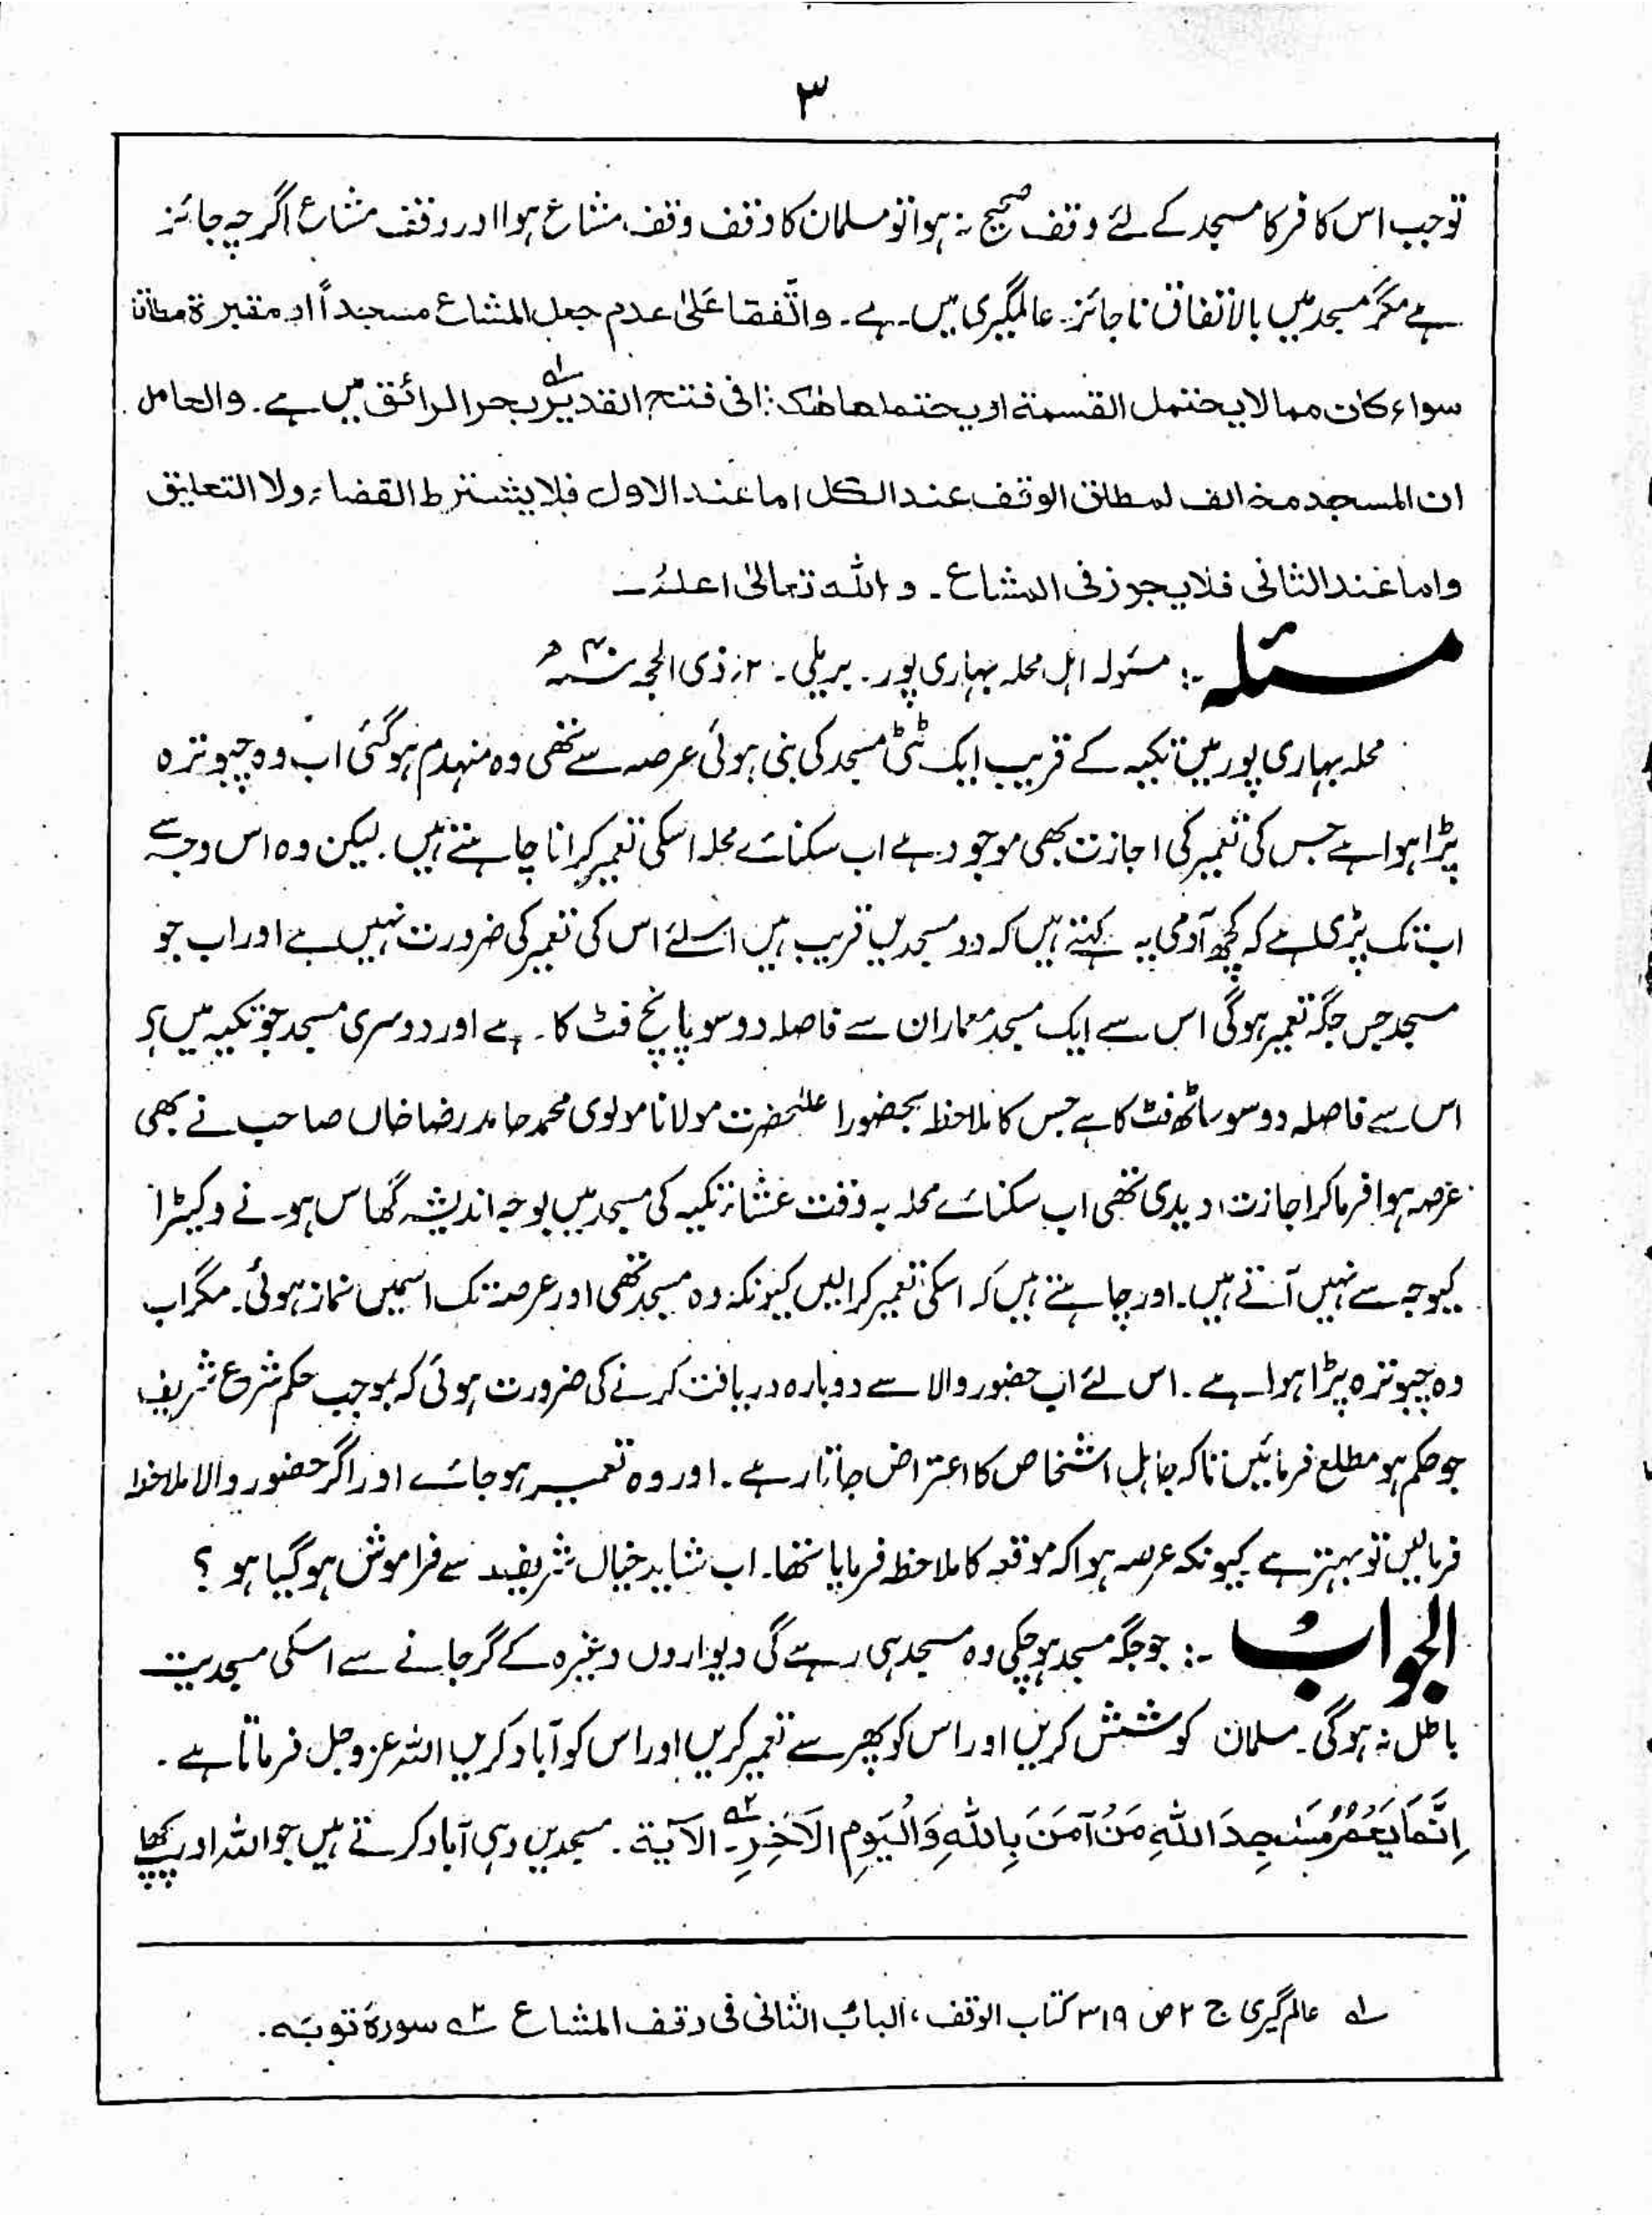 ۳
توجب اس کافر کا مسجد کے لئے وقف صحیح نہ ہوا تو مسلمان کا وقف وقف مشاع ہوا اور وقف مشاع اگرچہ جائز
ہے مگر مسجد میں بالاتفاق ناجائز۔ عالمگیری میں ہے۔ واتّفقا علیٰ عدم جعل المشاع مسجداً او مقبرة مطلقا
سواء کان مما لا یحتمل القسمة او یحتملها هٰکذا فی فتح القدیر۱ے بحرالرائق میں ہے۔ والحاصل
ان المسجد مخالف لمطلق الوقف عند الکل اما عند الاول فلا یشترط القضاء ولا التعلیق
واما عند الثانی فلا یجوز فی المشاع۔ و اللہ تعالیٰ اعلم۔
مسئلہ :۔ مسئولہ اہل محلہ بہاری پور۔ بریلی۔ ۲؍ ذی الحجہ ۴۰ھ
محلہ بہاری پور میں تکیہ کے قریب ایک ٹٹی مسجد کی بنی ہوئی عرصہ سے تھی وہ منہدم ہوگئی اب وہ چبوترہ
پڑا ہوا ہے جس کی تعمیر کی اجازت بھی موجود ہے اب سکنائے محلہ اسکی تعمیر کرانا چاہتے ہیں۔ لیکن وہ اس وجہ سے
اب تک پڑی ہے کہ کچھ آدمی یہ کہتے ہیں کہ دو مسجدیں قریب ہیں اسلئے اس کی تعمیر کی ضرورت نہیں ہے اور اب جو
مسجد جس جگہ تعمیر ہوگی اس سے ایک مسجد معماران سے فاصلہ دوسو پانچ فٹ کا ہے اور دوسری مسجد جو تکیہ میں ہے
اس سے فاصلہ دوسو ساٹھ فٹ کا ہے جس کا ملاحظہ بحضور اعلیٰحضرت مولانا مولوی محمد حامد رضا خاں صاحب نے بھی
عرصہ ہوا فرما کر اجازت دیدی تھی اب سکنائے محلہ بہ وقت عشاء تکیہ کی مسجد میں بوجہ اندیشہ گھاس ہونے و کیڑا
کیوجہ سے نہیں آتے ہیں۔ اور چاہتے ہیں کہ اسکی تعمیر کرالیں کیونکہ وہ مسجد تھی اور عرصہ تک اسمیں نماز ہوئی۔ مگر اب
وہ چبوترہ پڑا ہوا ہے۔ اس لئے اب حضور والا سے دوبارہ دریافت کرنے کی ضرورت ہوئی کہ بموجب حکم شرع شریف
جو حکم ہو مطلع فرمائیں تاکہ جاہل اشخاص کا اعتراض جاتا رہے۔ اور وہ تعمیر ہو جائے اور اگر حضور والا ملاحظہ
فرمالیں تو بہتر ہے کیونکہ عرصہ ہوا کہ موقعہ کا ملاحظہ فرمایا تھا۔ اب شاید خیال شریف سے فراموش ہوگیا ہو ؟
الجواب :۔ جو جگہ مسجد ہوچکی وہ مسجد ہی رہے گی دیواروں وغیرہ کے گر جانے سے اسکی مسجدیت
باطل نہ ہوگی۔ مسلمان کوشش کریں اور اس کو پھر سے تعمیر کریں اور اس کو آباد کریں اللہ عزوجل فرماتا ہے۔
اِنَّمَا یَعْمُرُ مَسٰجِدَ اللهِ مَنْ آمَنَ بِاللهِ وَالْیَوْمِ الْاٰخِرِ۲ے۔ الآیة۔ مسجدیں وہی آباد کرتے ہیں جو اللہ اور پچھلے
۱ے عالم گیری ج ۲ ص ۳۱۹ کتاب الوقف، الباب الثانی فی وقف المشاع ۲ے سورۂ توبہ۔